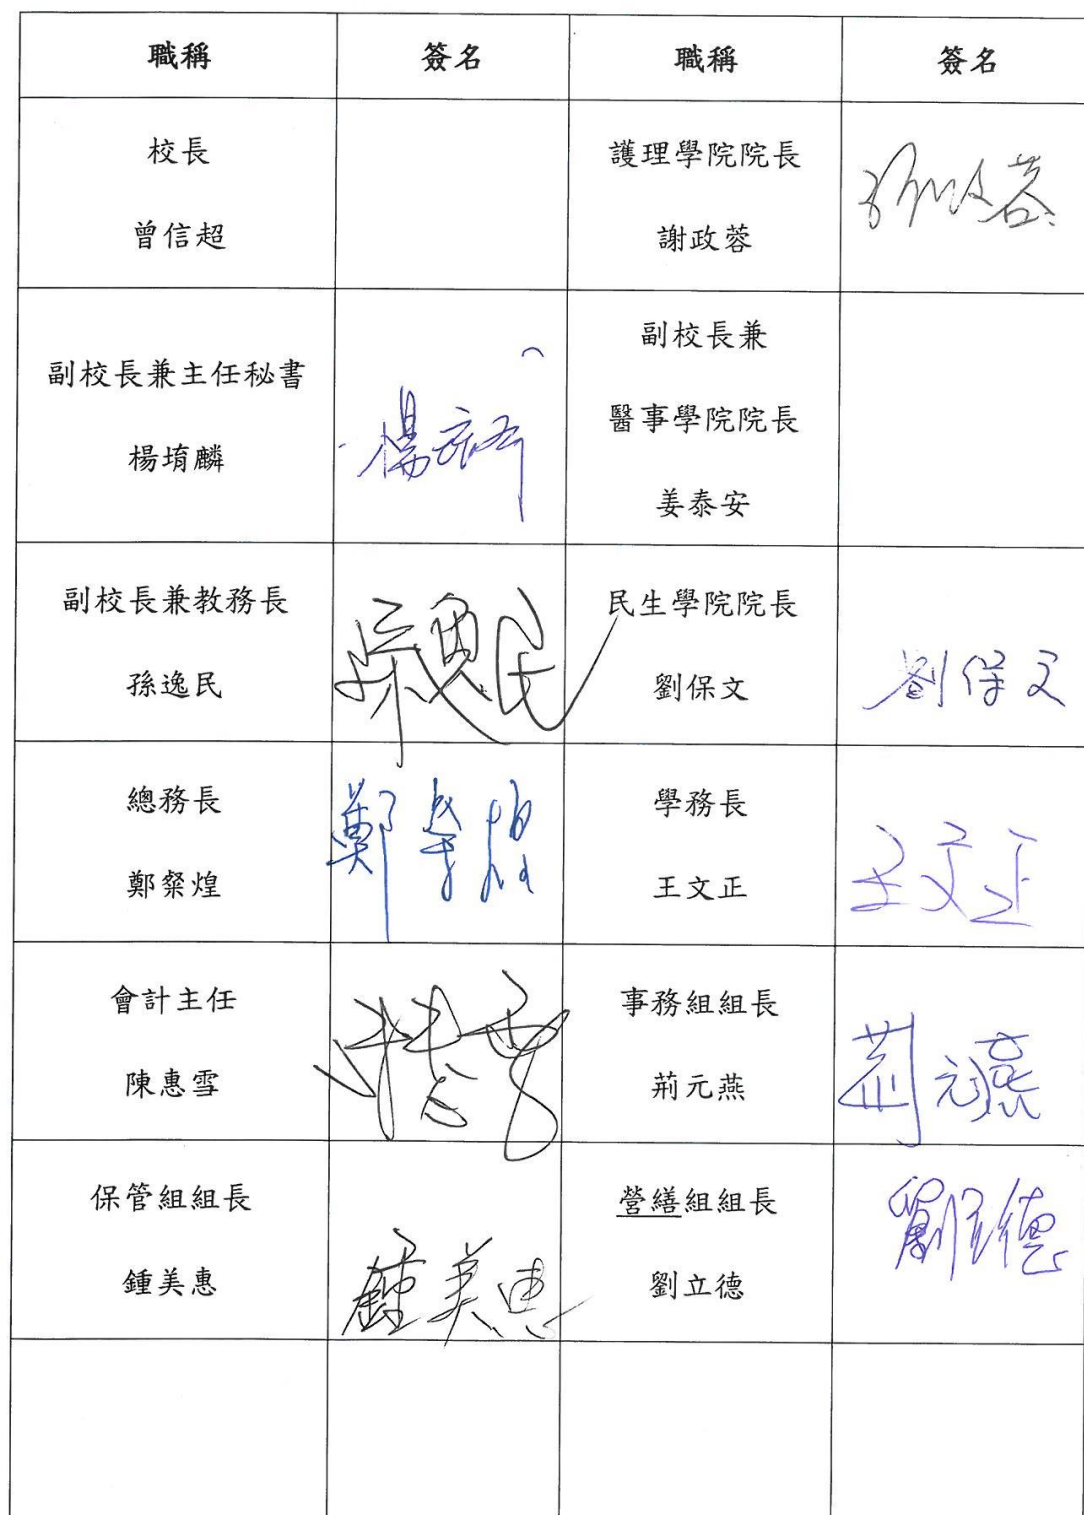 職稱 簽名 職稱 簽名
校長
曾信超
護理學院院長
謝政蓉
副校長兼主任秘書
楊堉麟
副校長兼
醫事學院院長
姜泰安
副校長兼教務長
孫逸民
孫逸民
民生學院院長
劉保文
劉保文
總務長
鄭粲煌
鄭粲煌
學務長
王文正
王文正
會計主任
陳惠雪
事務組組長
荊元燕
荊元燕
保管組組長
鍾美惠
鍾美惠
營繕組組長
劉立德
劉立德